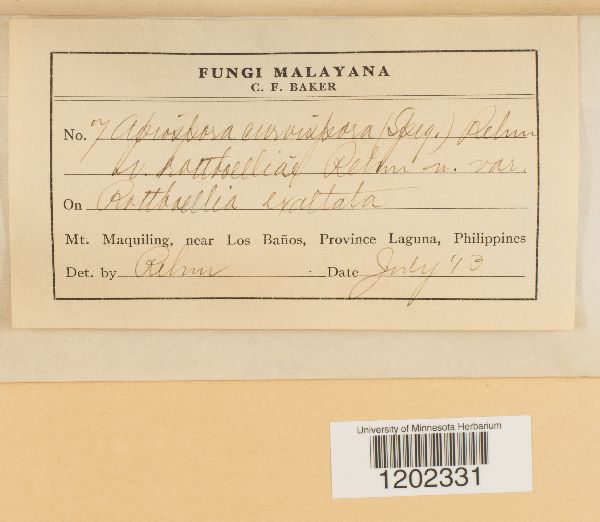 FUNGI MALAYANA
C. F. BAKER
No. 7 Apiospora curvispora (Speg.) Rehm
v. Rottboelliae Rehm n. var.
On Rottboellia exaltata
Mt. Maquiling, near Los Baños, Province Laguna, Philippines
Det. by Rehm Date July '13
University of Minnesota Herbarium
1202331